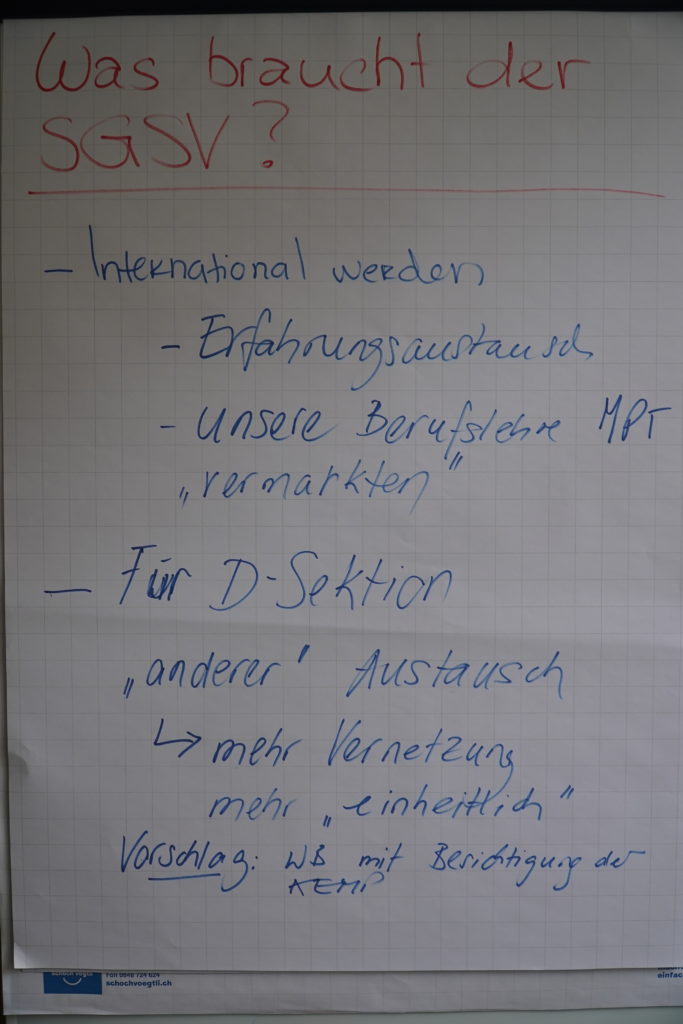 Was braucht der
SGSV?
– International werden
- Erfahrungsaustausch
- unsere Berufslehre MPT
„vermarkten"
– Für D-Sektion
„anderer" Austausch
↳ mehr Vernetzung
mehr „einheitlich"
Vorschlag: WB mit Besichtigung der
AEMP
schoch vögtli
Fon 0848 724 624
schochvoegtli.ch
einfac